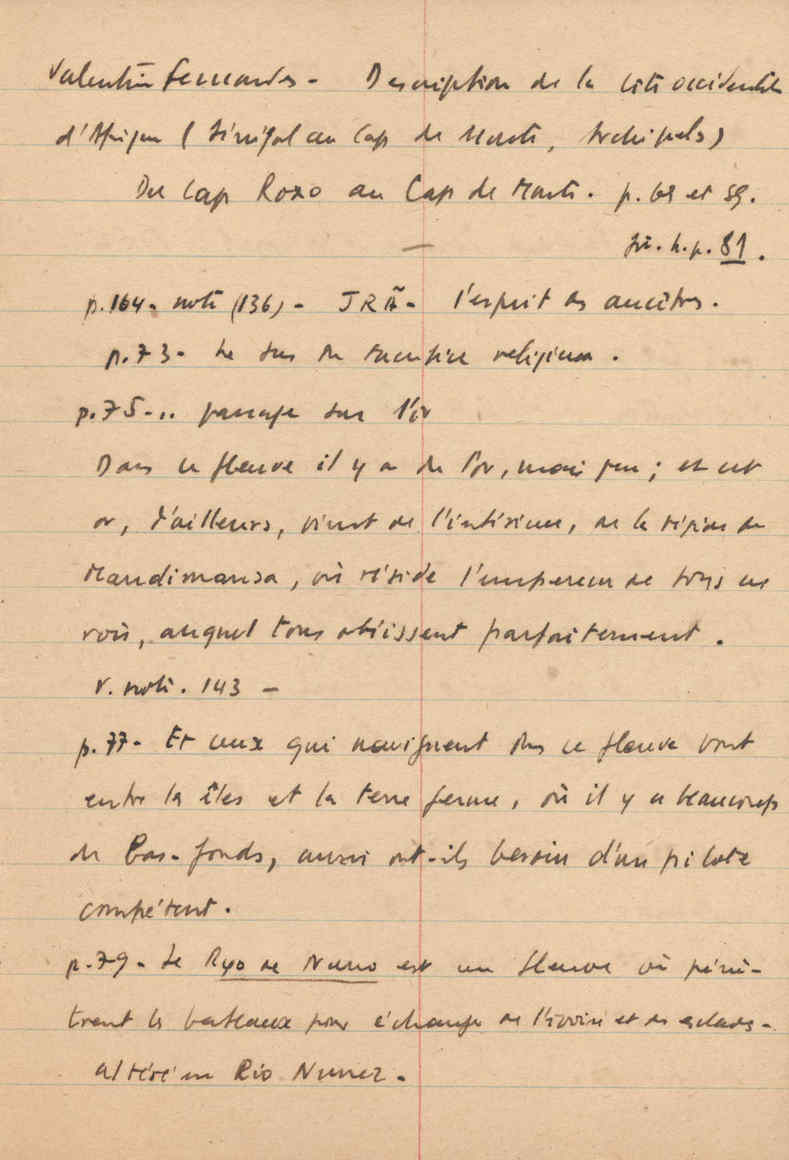 Valentin Fernandes - Description de la côte occidentale
d'Afrique (Sénégal au Cap de Monte, Archipels)
Du Cap Roxo au Cap de Monte. p. 69 et sg.
h. p. 81.
p. 164 - note (136) - JRÃ - l'esprit des ancêtres.
p. 73 - Le sens du sacrifice religieux.
p. 75 - .. passage sur l'or
Dans ce fleuve il y a de l'or, mais peu ; et cet
or, d'ailleurs, vient de l'intérieur, de la région de
Mandimansa, où réside l'empereur de tous ces
rois, auquel tous obéissent parfaitement.
V. note. 143 -
p. 77 - Et ceux qui naviguent dans ce fleuve vont
entre les îles et la terre ferme, où il y a beaucoup
de bas-fonds, aussi ont-ils besoin d'un pilote
compétent.
p. 79 - Le Ryo de Nuno est un fleuve où pénè-
trent les bateaux pour échanger de l'ivoire et des esclaves -
altéré en Rio Nunez -